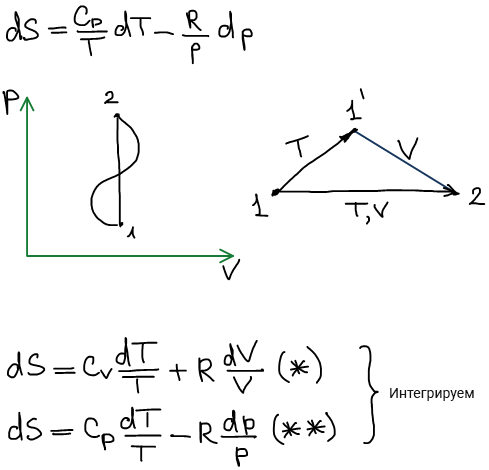 dS = C_p/T dT − R/p dp
P
2
1
V
1'
T
V
1
T,V
2
dS = C_v dT/T + R dV/V (*)
dS = C_p dT/T − R dp/p (**)
Интегрируем